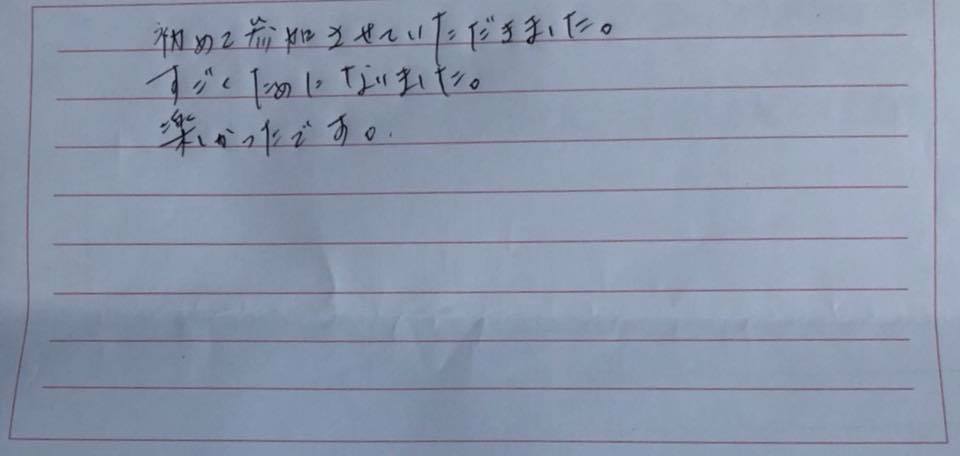 初めて参加させていただきました。
すごくためになりました。
楽しかったです。